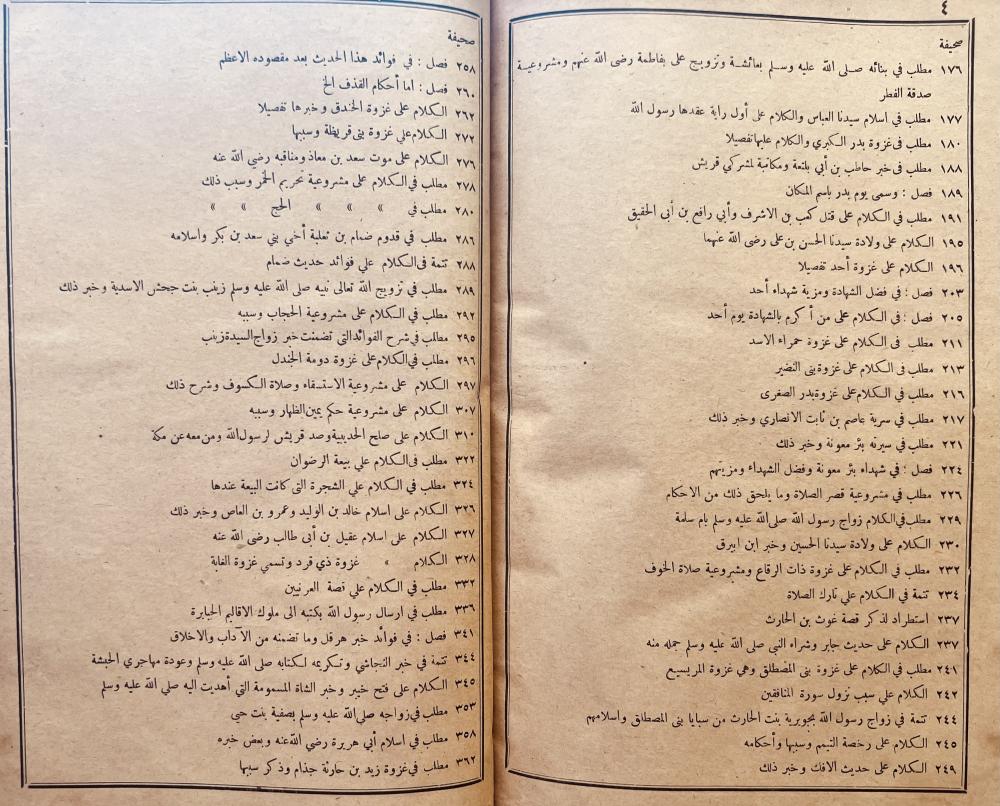 ٤
صحيفة
١٧٦ مطلب في بنائه صلى الله عليه وسلم بعائشة وتزويج على بفاطمة رضى الله عنهم ومشروعية
صدقة الفطر
١٧٧ مطلب في اسلام سيدنا العباس والكلام على أول راية عقدها رسول الله
١٨٠ مطلب فى غزوة بدر الكبري والكلام عليها تفصيلا
١٨٨ مطلب فى خبر حاطب بن أبي بلتعة ومكاتبة لمشركي قريش
١٨٩ فصل : وسمى يوم بدر باسم المكان
١٩١ مطلب في الكلام على قتل كعب بن الاشرف وأبي رافع بن أبى الحقيق
١٩٥ الكلام على ولادة سيدنا الحسن بن على رضى الله عنهما
١٩٦ الكلام على غزوة أحد تفصيلا
٢٠٣ فصل : في فضل الشهادة ومزية شهداء أحد
٢٠٥ فصل : في الكلام على من أكرم بالشهادة يوم أحد
٢١١ مطلب فى الكلام على غزوة حمراء الاسد
٢١٣ مطلب فى الكلام على غزوة بنى النضير
٢١٦ مطلب في الكلام على غزوة بدر الصغرى
٢١٧ مطلب في سرية عاصم بن ثابت الانصاري وخبر ذلك
٢٢١ مطلب في سيرته بئر معونة وخبر ذلك
٢٢٤ فصل : في شهداء بئر معونة وفضل الشهداء ومزيتهم
٢٢٦ مطلب في مشروعية قصر الصلاة وما يلحق ذلك من الاحكام
٢٢٩ مطلب في الكلام زواج رسول الله صلى الله عليه وسلم بام سلمة
٢٣٠ الكلام على ولادة سيدنا الحسين وخبر ابن ابيرق
٢٣٢ مطلب في الكلام على غزوة ذات الرقاع ومشروعية صلاة الخوف
٢٣٤ تتمة في الكلام علي تارك الصلاة
٢٣٧ استطراد لذكر قصة غوث بن الحارث
٢٣٧ الكلام على حديث جابر وشراء النبى صلى الله عليه وسلم جمله منه
٢٤١ مطلب في الكلام على غزوة بنى المصطلق وهي غزوة المريسيع
٢٤٢ الكلام علي سبب نزول سورة المنافقين
٢٤٤ تتمة في زواج رسول الله بجويرية بنت الحارث من سبايا بنى المصطلق واسلامهم
٢٤٥ الكلام على رخصة التيمم وسببها وأحكامه
٢٤٩ الكلام على حديث الافك وخبر ذلك
صحيفة
٢٥٨ فصل : في فوائد هذا الحديث بعد مقصوده الاعظم
٢٦٠ فصل : اما أحكام القذف الخ
٢٦٢ الكلام على غزوة الخندق وخبرها تفصيلا
٢٧٢ الكلام علي غزوة بنى قريظة وسببها
٢٧٦ الكلام على موت سعد بن معاذ ومناقبه رضي الله عنه
٢٧٨ مطلب في الكلام على مشروعية تحريم الخمر وسبب ذلك
٢٨٠ مطلب في » » » الحج » »
٢٨٦ مطلب في قدوم ضمام بن ثعلبة أخي بني سعد بن بكر واسلامه
٢٨٨ تتمة فى الكلام علي فوائد حديث ضمام
٢٨٩ مطلب في تزويج الله تعالى نبيه صلى الله عليه وسلم زينب بنت جحش الاسدية وخبر ذلك
٢٩٢ مطلب في الكلام على مشروعية الحجاب وسببه
٢٩٥ مطلب في شرح الفوائد التى تضمنت خبر زواج السيدة زينب
٢٩٦ مطلب في الكلام على غزوة دومة الجندل
٢٩٧ الكلام على مشروعية الاستسقاء وصلاة الكسوف وشرح ذلك
٣٠٧ الكلام على مشروعية حكم يمين الظهار وسببه
٣١٠ الكلام على صلح الحديبية وصد قريش لرسول الله ومن معه عن مكة
٣٢٢ مطلب فى الكلام علي بيعة الرضوان
٣٢٤ مطلب في الكلام علي الشجرة التى كانت البيعة عندها
٣٢٦ الكلام على اسلام خالد بن الوليد وعمرو بن العاص وخبر ذلك
٣٢٧ الكلام على اسلام عقيل بن أبى طالب رضى الله عنه
٣٢٨ الكلام » غزوة ذي قرد وتسمي غزوة الغابة
٣٣٢ مطلب في الكلام علي قصة العرنيين
٣٣٦ مطلب في ارسال رسول الله بكتبه الى ملوك الاقاليم الجبابرة
٣٤١ فصل : في فوائد خبر هرقل وما تضمنه من الآداب والاخلاق
٣٤٤ تتمة في خبر النجاشي وتكريمه لكتابه صلى الله عليه وسلم وعودة مهاجري الحبشة
٣٤٥ الكلام على فتح خيبر وخبر الشاة المسمومة التي أهديت اليه صلي الله عليه وسلم
٣٥٣ مطلب في زواجه صلى الله عليه وسلم بصفية بنت حى
٣٥٨ مطلب في اسلام أبي هريرة رضي الله عنه وبعض خبره
٣٦٢ مطلب في غزوة زيد بن حارثة جذام وذكر سببها